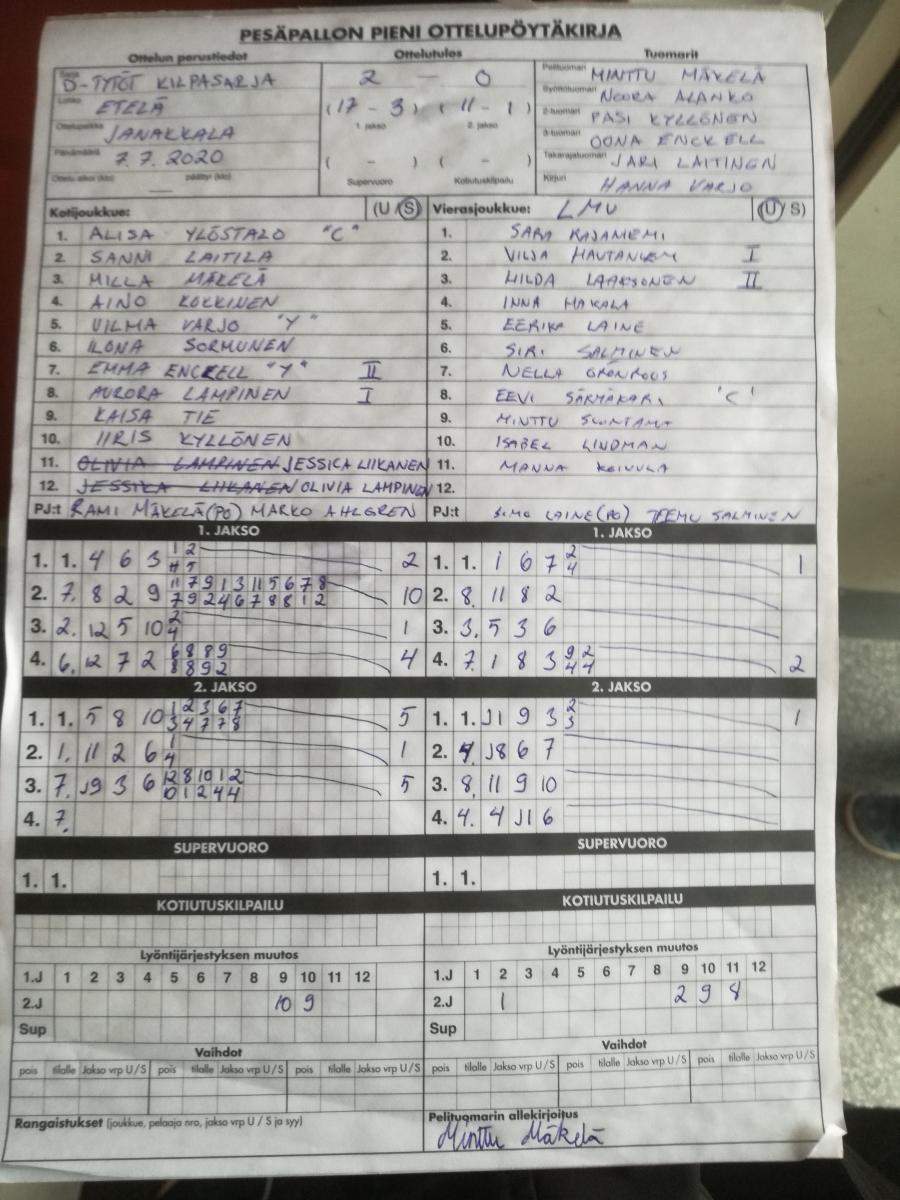 PESÄPALLON PIENI OTTELUPÖYTÄKIRJA
Ottelun perustiedot Ottelutulos Tuomarit
Sarja D-TYTÖT KILPASARJA
Lohko ETELÄ
Ottelupaikka JANAKKALA
Päivämäärä 7.7.2020
Ottelu alkoi (klo) päättyi (klo)
2 - 0
(17 - 3) (11 - 1)
1. jakso 2. jakso
( - ) ( - )
Supervuoro Kotiutuskilpailu
Pelituomari MINTTU MÄKELÄ
Syöttötuomari NOORA ALANKO
2-tuomari PASI KYLLÖNEN
3-tuomari OONA ENCKELL
Takarajatuomari JARI LAITINEN
Kirjuri HANNA VARJO
Kotijoukkue: (U / S)
1. ALISA YLÖSTALO "C"
2. SANNI LAITILA
3. MILLA MÄKELÄ
4. AINO KOKKINEN
5. VILMA VARJO "Y"
6. ILONA SORMUNEN
7. EMMA ENCKELL "Y" II
8. AURORA LAMPINEN I
9. KAISA TIE
10. IIRIS KYLLÖNEN
11. OLIVIA LAMPINEN JESSICA LIIKANEN
12. JESSICA LIIKANEN OLIVIA LAMPINEN
PJ:t RAMI MÄKELÄ (PO) MARKO AHLGREN
Vierasjoukkue: LMU (U / S)
1. SARA RAJANIEMI
2. VILJA HAUTANIEMI I
3. HILDA LAAKSONEN II
4. INNA MAKALA
5. EERIKA LAINE
6. SIRI SALMINEN
7. NELLA GRÖNROOS
8. EEVI SÄRMÄKARI 'C'
9. MINTTU SUNTAMA
10. ISABEL LINDMAN
11. MANNA KOIVULA
12.
PJ:t SIMO LAINE (PO) TEEMU SALMINEN
1. JAKSO
1. 1. 4 6 3 1 2 2
11 5
2. 7. 8 2 9 11 7 9 1 3 11 5 6 7 8 10
7 9 2 4 6 7 8 8 1 2
3. 2. 12 5 10 2 1
4
4. 6. 12 7 2 6 8 8 9 4
8 8 9 2
1. JAKSO
1. 1. 1 6 7 2 1
4
2. 8. 11 8 2
3. 3. 5 3 6
4. 7. 1 8 3 9 2 2
4 4
2. JAKSO
1. 1. 5 8 10 1 2 3 6 7 5
3 4 7 7 8
2. 1. 11 2 6 1 1
4
3. 7. J9 3 6 12 8 10 1 2 5
10 1 2 4 4
4. 7.
2. JAKSO
1. 1. J1 9 3 2 1
3
2. 4. J8 6 7
3. 8. 11 9 10
4. 4. 4 J1 6
SUPERVUORO
1. 1.
SUPERVUORO
1. 1.
KOTIUTUSKILPAILU
KOTIUTUSKILPAILU
Lyöntijärjestyksen muutos
1.J 1 2 3 4 5 6 7 8 9 10 11 12
2.J 10 9
Sup
Lyöntijärjestyksen muutos
1.J 1 2 3 4 5 6 7 8 9 10 11 12
2.J 1 2 9 8
Sup
Vaihdot
pois tilalle Jakso vrp U/S pois tilalle Jakso vrp U/S pois tilalle Jakso vrp U/S
Vaihdot
pois tilalle Jakso vrp U/S pois tilalle Jakso vrp U/S pois tilalle Jakso vrp U/S
Rangaistukset (joukkue, pelaaja nro, jakso vrp U / S ja syy)
Pelituomarin allekirjoitus
Minttu Mäkelä